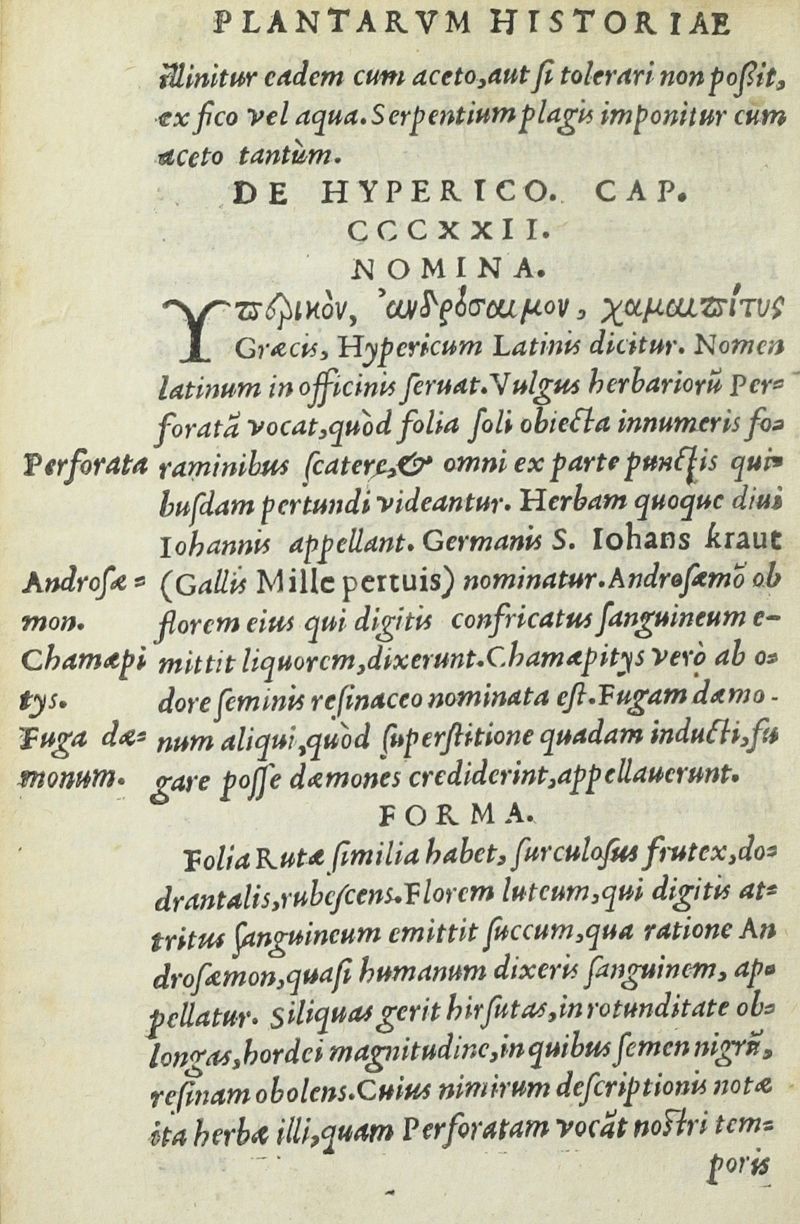 PLANTARVM HISTORIAE
illinitur eadem cum aceto, aut si tolerari non poßit,
ex fico vel aqua. Serpentium plagis imponitur cum
aceto tantùm.
DE HYPERICO. CAP.
CCCXXII.
NOMINA.
Υπερικὸν, ἀνδρόσαιμον, χαμαιπίτυς
Græcis, Hypericum Latinis dicitur. Nomen
latinum in officinis seruat. Vulgus herbariorũ Per=
foratã vocat, quòd folia soli obiecta innumeris fo=
Perforata raminibus scatere, & omni ex parte punctis qui=
busdam pertundi videantur. Herbam quoque diui
Iohannis appellant. Germanis S. Iohans kraut
Androsæ= (Gallis Mille pertuis) nominatur. Androsæmõ ob
mon. florem eius qui digitis confricatus sanguineum e-
Chamæpi mittit liquorem, dixerunt. Chamæpitys verò ab o=
tys. dore seminis resinaceo nominata est. Fugam dæmo-
Fuga dæ= num aliqui, quòd superstitione quadam inducti, fu
monum. gare posse dæmones crediderint, appellauerunt.
FORMA.
Folia Rutæ similia habet, surculosus frutex, do=
drantalis, rubescens. Florem luteum, qui digitis at=
tritus sanguineum emittit succum, qua ratione An
drosæmon, quasi humanum dixeris sanguinem, ap=
pellatur. Siliquas gerit hirsutas, in rotunditate ob=
longas, hordei magnitudine, in quibus semen nigrũ,
resinam obolens. Cuius nimirum descriptionis notæ
ita herbæ illi, quam Perforatam vocãt nostri tem=
poris